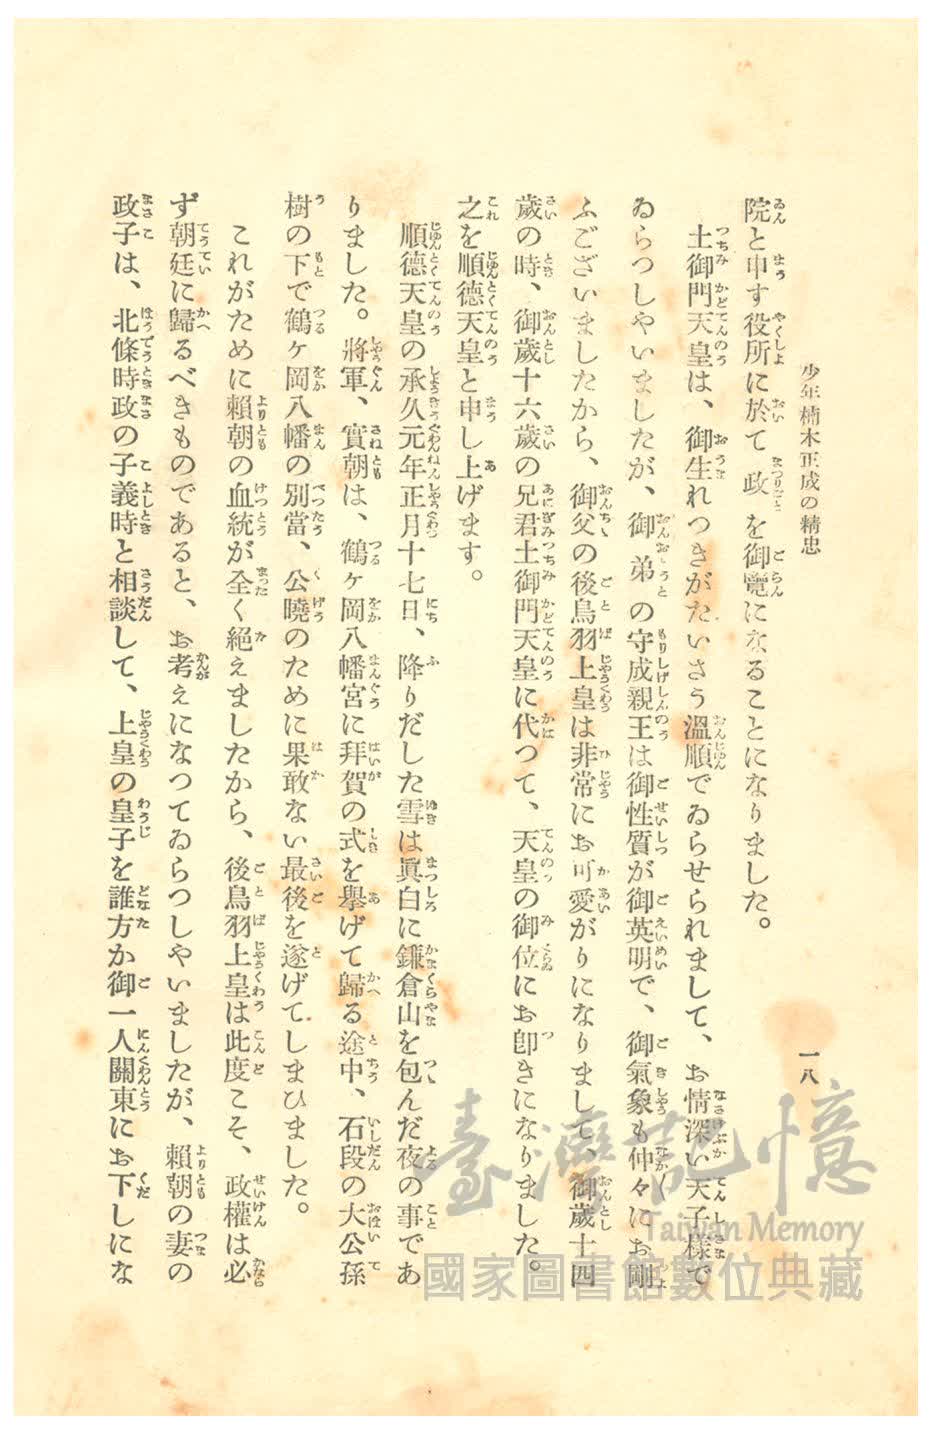 少年楠木正成の精忠
一八
院と申す役所に於て政を御覽になることになりました。
土御門天皇は、御生れつきがたいさう溫順でゐらせられまして、お情深い天子樣で
ゐらつしやいましたが、御弟の守成親王は御性質が御英明で、御氣象も仲々にお剛
ふございましたから、御父の後鳥羽上皇は非常にお可愛がりになりまして、御歲十四
歲の時、御歲十六歲の兄君土御門天皇に代つて、天皇の御位にお卽きになりました。
之を順德天皇と申し上げます。
順德天皇の承久元年正月十七日、降りだした雪は眞白に鎌倉山を包んだ夜の事であ
りました。將軍、實朝は、鶴ヶ岡八幡宮に拜賀の式を擧げて歸る途中、石段の大公孫
樹の下で鶴ヶ岡八幡の別當、公曉のために果敢ない最後を遂げてしまひました。
これがために賴朝の血統が全く絕えましたから、後鳥羽上皇は此度こそ、政權は必
ず朝廷に歸るべきものであると、お考えになつてゐらつしやいましたが、賴朝の妻の
政子は、北條時政の子義時と相談して、上皇の皇子を誰方か御一人關東にお下しにな
臺灣記憶
Taiwan Memory
國家圖書館數位典藏